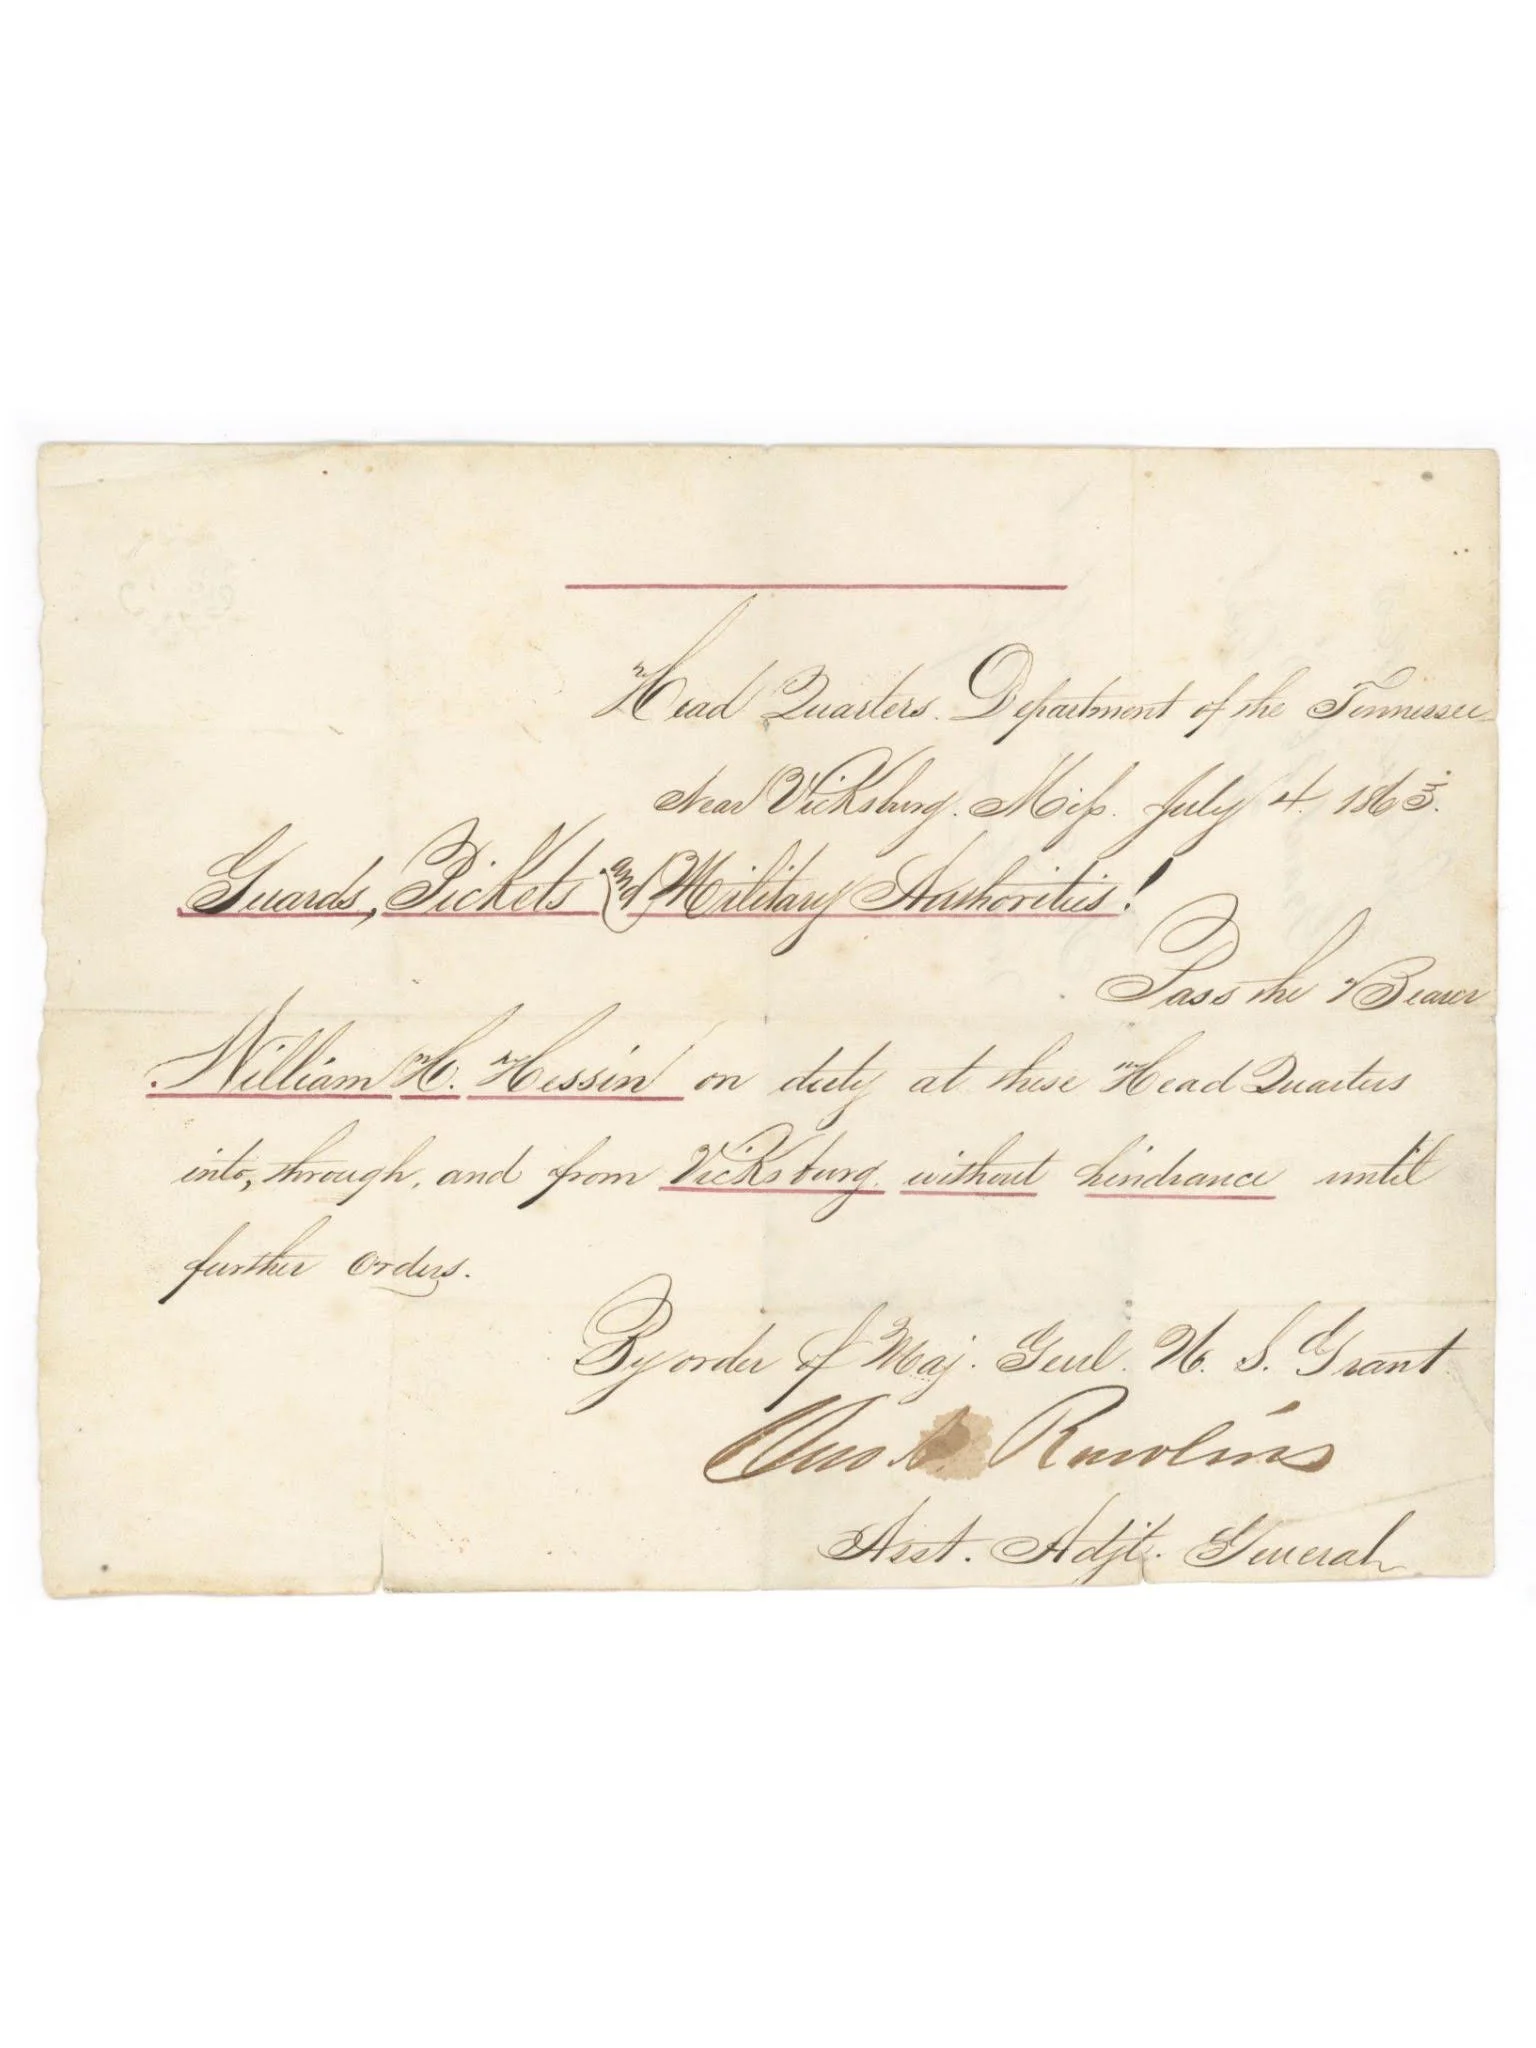 Head Quarters. Department of the Tennessee
Near Vicksburg. Miss. July 4. 1863.
Guards, Pickets and Military Authorities!
Pass the Bearer
William H. Hessin on duty at these Head Quarters
into, through, and from Vicksburg. without hindrance until
further orders.
By order of Maj. Genl. U. S. Grant
Jno A. Rawlins
Asst. Adjt. General